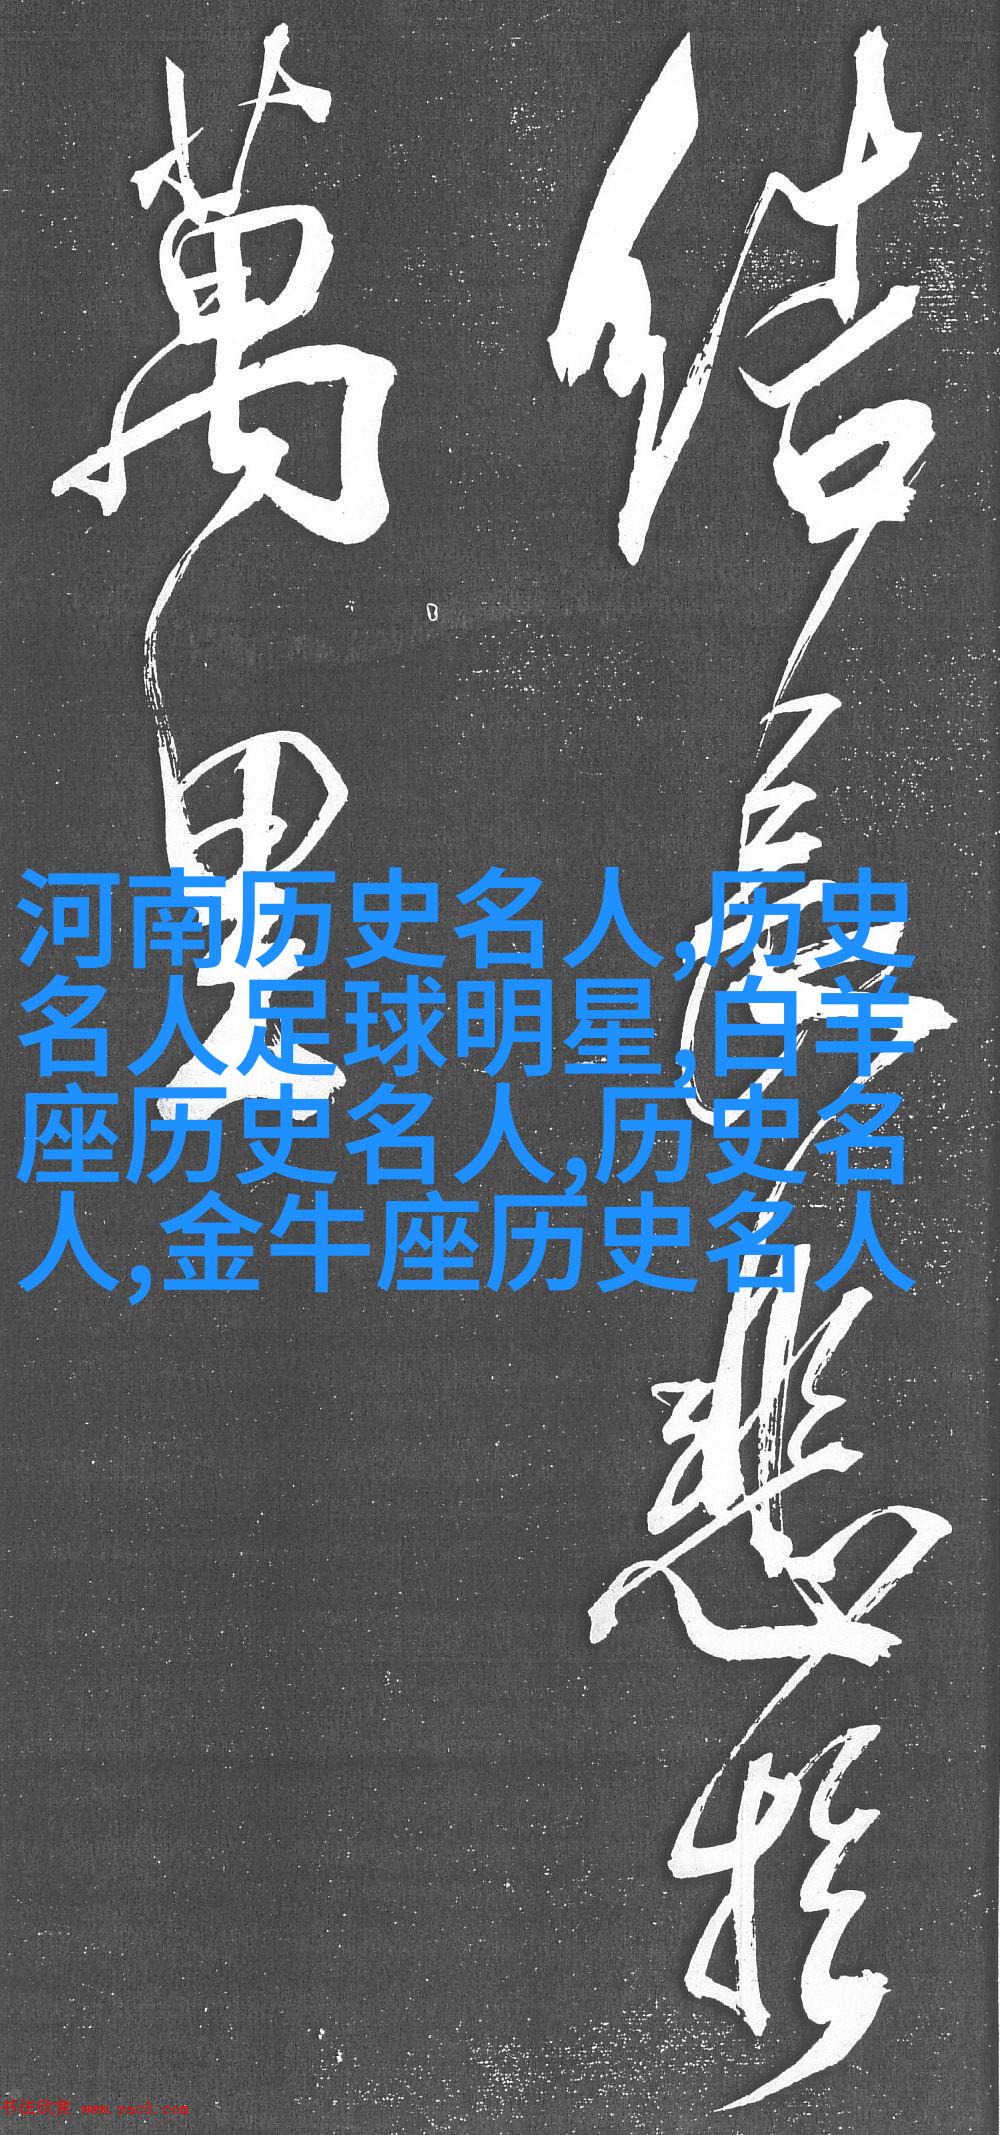 結長悲於
萬里
河南历史名人,历史
名人足球明星,白羊
座历史名人,历史名
人,金牛座历史名人
书法欣赏 www.yac8.com